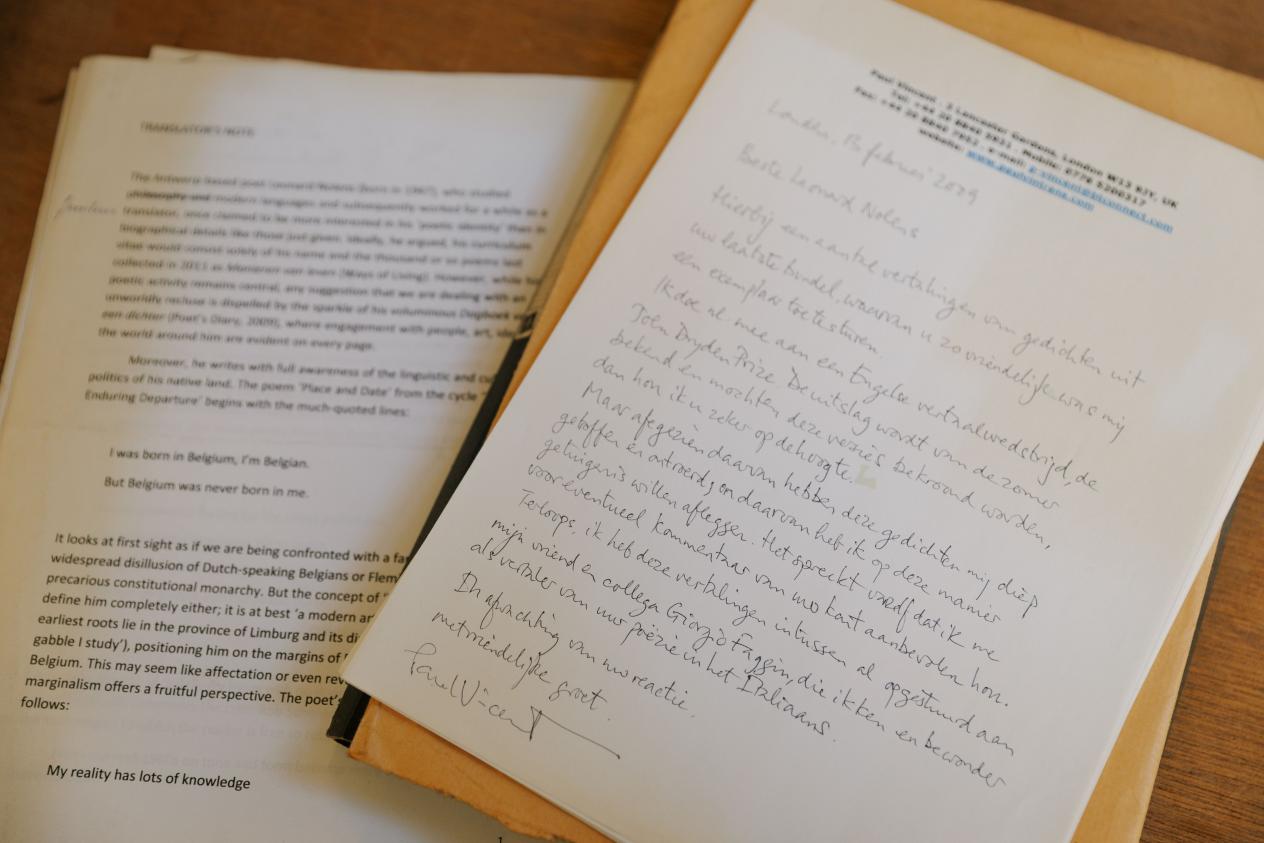 TRANSLATOR'S NOTE
The Antwerp-based poet Leonard Nolens (born in 1947), who studied
philosophy and modern languages and subsequently worked for a while as a
translator, once claimed to be more interested in his 'poetic identity' than in
biographical details like those just given. Ideally, he argued, his curriculum
vitae would consist solely of his name and the thousand or so poems last
collected in 2011 as Manieren van leven (Ways of Living). However, while his
poetic activity remains central, any suggestion that we are dealing with an
unworldly recluse is dispelled by the sparkle of his voluminous Dagboek
een dichter (Poet's Diary, 2009), where engagement with people, art,
the world around him are evident on every page.
Moreover, he writes with full awareness of the linguistic and
politics of his native land. The poem 'Place and Date' from the cycle
Enduring Departure' begins with the much-quoted lines:
I was born in Belgium, I'm Belgian.
But Belgium was never born in me.
It looks at first sight as if we are being confronted with a
widespread disillusion of Dutch-speaking Belgians or
precarious constitutional monarchy. But the concept of
define him completely either; it is at best 'a modern
earliest roots lie in the province of Limburg and its
gabble I study'), positioning him on the margins of
Belgium. This may seem like affectation or even
marginalism offers a fruitful perspective. The poet's
follows:
My reality has lots of knowledge
1
Paul Vincent - 2 Lancaster Gardens, London W13 9JY, UK
Tel: +44 20 8840 - Mobile: 0778
Fax: +44 20 8840 - e-mail:
website:
Londen, februari
Beste Leonard Nolens
Hierbij een aantal vertalingen van gedichten uit
uw laatste bundel, waarvan u zo vriendelijk was mij
een exemplaar toe te sturen.
Ik doe al mee aan een Engelse vertaalwedstrijd, de
John Dryden Prize. De uitslag wordt van de zomer
bekend en mochten deze versies bekroond worden,
dan hou ik u zeker op de hoogte.
Maar afgezien daarvan hebben deze gedichten mij diep
getroffen en ontroerd, en daarvan heb ik op deze manier
getuigenis willen afleggen. Het spreekt vanzelf dat ik me
voor eventueel kommentaar van uw kant aanbevolen hou.
Terloops, ik heb deze vertalingen intussen al opgestuurd aan
mijn vriend en collega Giorgio Faggin, die ik ken en bewonder
als vertaler van uw poëzie in het Italiaans.
In afwachting van uw reactie.
met vriendelijke groet.
Paul Vincent